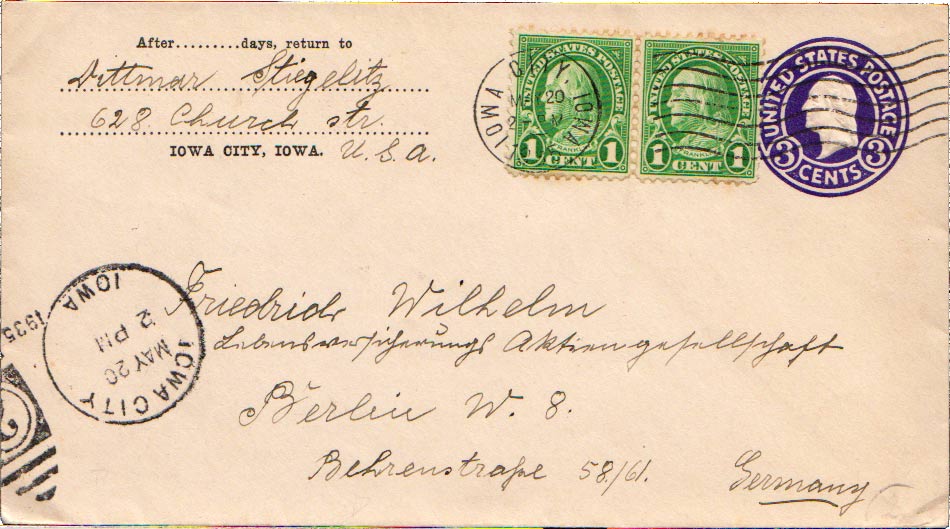 After.........days, return to
Dittmar Stiegelitz
628 Church str.
IOWA CITY, IOWA. U.S.A.
IOWA CITY, IOWA
20
UNITED STATES POSTAGE
FRANKLIN
1 CENT 1
UNITED STATES POSTAGE
FRANKLIN
1 CENT 1
UNITED STATES POSTAGE
3 CENTS 3
IOWA CITY
MAY 20
2 PM
IOWA
1935
Friedrich Wilhelm
Lebensversicherungs Aktiengesellschaft
Berlin W. 8.
Behrenstraße 58/61.
Germany